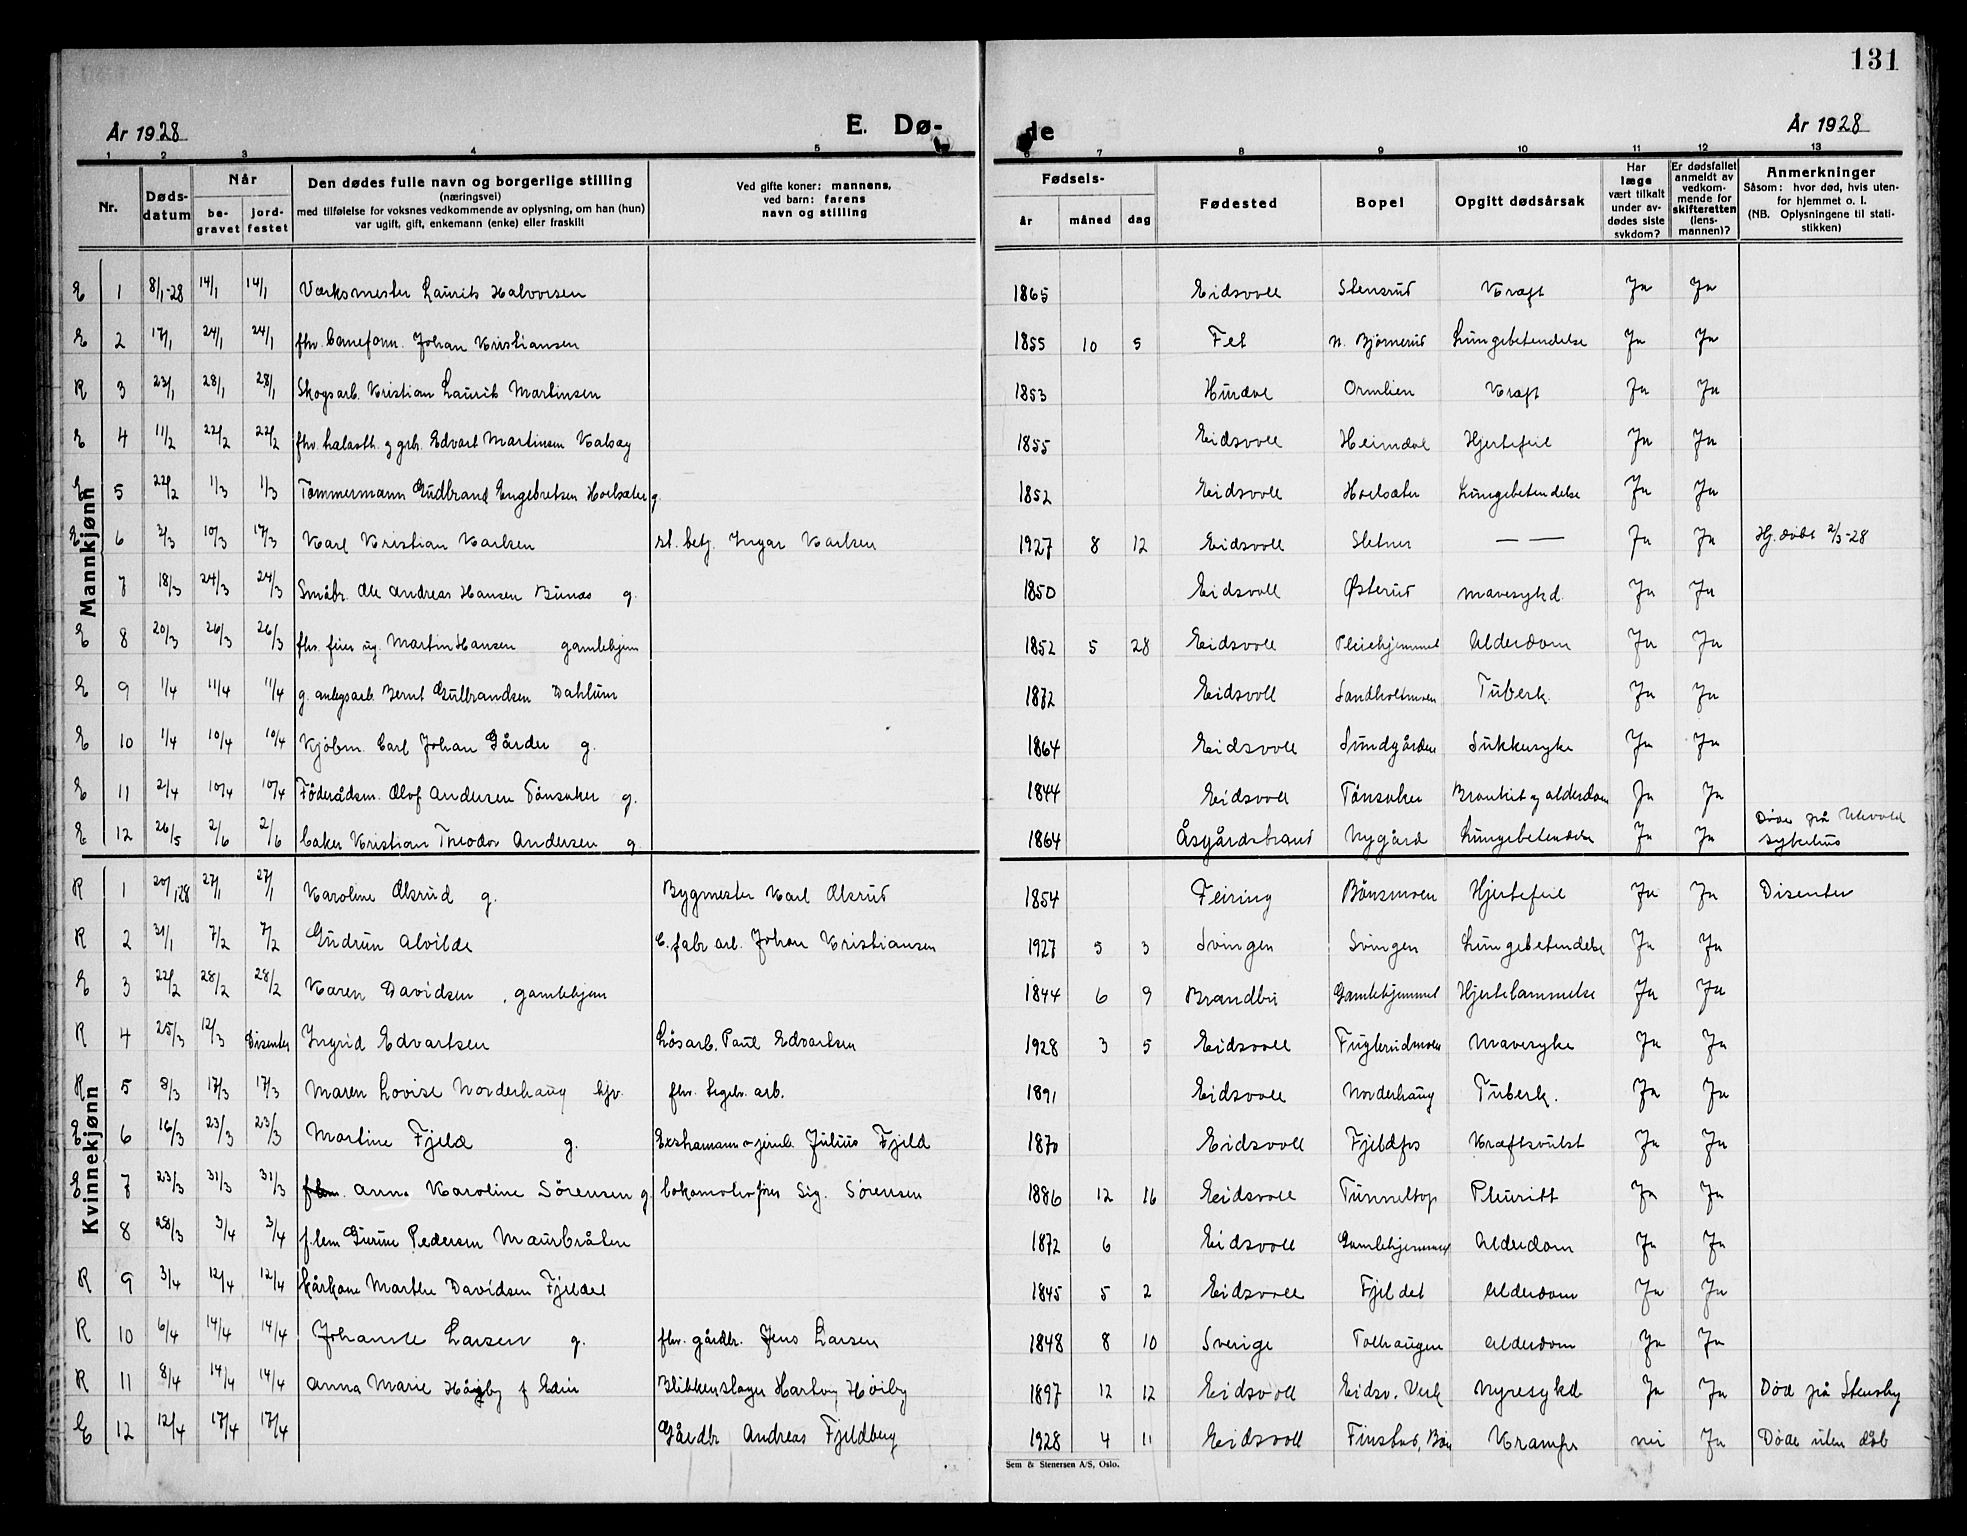 131
År 1928 E. Dø- de År 1928
1 2 3 4 5 6 7 8 9 10 11 12 13
Nr. Døds-datum Når be-gravet jord-festet Den dødes fulle navn og borgerlige stilling (næringsvei) med tilføielse for voksnes vedkommende av oplysning, om han (hun) var ugift, gift, enkemann (enke) eller fraskilt Ved gifte koner: mannens, ved barn: farens navn og stilling Fødsels- år måned dag Fødested Bopel Opgitt dødsårsak Har læge vært tilkalt under av-dødes siste sykdom? Er dødsfallet anmeldt av vedkom-mende for skifteretten (lens-mannen)? Anmerkninger Såsom: hvor død, hvis uten-for hjemmet o. l. (NB. Oplysningene til stati-stikken)
Mannkjønn
E 1 8/1-28 14/1 14/1 Værksmester Laurits Halvorsen 1865 Eidsvoll Stensrud Kræft Ja Ja
E 2 17/1 24/1 24/1 fhv. Johan Kristiansen 1855 10 5 Fet N. Bjørnerud Lungebetendelse Ja Ja
R 3 23/1 28/1 28/1 Skogsarb. Kristian Laurits Martinsen 1853 Hurdal Ormlien Kræft Ja Ja
E 4 11/2 22/2 22/2 fhv. og grb. Edvart Martinsen 1855 Eidsvoll Heimdal Hjertefeil Ja Ja
E 5 22/2 1/3 1/3 Tømmermann Gudbrand Engebretsen Hoelsæter g. 1852 Eidsvoll Hoelsæter Lungebetendelse Ja Ja
E 6 3/3 10/3 17/3 Karl Kristian Karlsen st. betj. Ingar Karlsen 1927 8 12 Eidsvoll Sletner — — Ja Ja Hj. døbt 2/3-28
7 18/3 24/3 24/3 Småbr. Ole Andreas Hansen Bunes g. 1850 Eidsvoll Østerud mavesykd. Ja Ja
E 8 20/3 26/3 26/3 fhv. feier ug. Martin Hansen gamlehjem 1852 5 28 Eidsvoll Pleiehjemmet Alderdom Ja Ja
E 9 1/4 11/4 11/4 g. anlegsarb. Bernt Gulbrandsen Dahlum 1872 Eidsvoll Sandholtmoen Tuberk. Ja Ja
E 10 1/4 10/4 10/4 Kjøbm. Carl Johan Gårder g. 1864 Eidsvoll Sundgården Sukkersyke Ja Ja
E 11 2/4 10/4 10/4 Føderådsm. Olof Andersen Tønsaker g. 1844 Eidsvoll Tønsaker Bronkit og alderdom Ja Ja
E 12 26/5 2/6 2/6 baker Kristian Theodor Andersen g. 1864 Åsgårdstrand Nygård Lungebetendelse Ja Ja Døde på Ulevold sykehus
Kvinnekjønn
R 1 20/1 28 27/1 27/1 Karoline Olsrud g. Bygmester Karl Olsrud 1854 Feiring Bønsmoen Hjertefeil Ja Ja Disenter
R 2 31/1 7/2 7/2 Gudrun Alvilde C. fabr arb. Johan Kristiansen 1927 5 3 Svingen Svingen Lungebetendelse Ja Ja
E 3 22/2 28/2 28/2 Karen Davidsen, gamlehjem 1844 6 9 Brandbu Gamlehjemmet Hjertelammelse Ja Ja
R 4 25/3 12/3 Disenter Ingrid Edvartsen Løsarb. Paul Edvartsen 1928 3 5 Eidsvoll Fuglerudmoen Mavesyke Ja Ja
R 5 8/3 17/3 17/3 Maren Lovise Norderhaug hjv. fhv. arb. 1891 Eidsvoll Norderhaug Tuberk. Ja Ja
E 6 16/3 23/3 23/3 Martine Fjeld g. Julius Fjeld 1870 Eidsvoll Fjeldfos Kræftsvulst Ja Ja
E 7 23/3 31/3 31/3 Anna Karoline Sørensen g. Lokomotivfører Sig. Sørensen 1886 12 16 Eidsvoll Tunneltop Pleuritt Ja Ja
8 28/3 3/4 3/4 f. lem Gurine Pedersen Maurbråten 1872 6 Eidsvoll Gamlehjemmet Alderdom Ja Ja
R 9 3/4 12/4 12/4 kårkone Marthe Davidsen Fjeldet 1845 5 2 Eidsvoll Fjeldet Alderdom Ja Ja
R 10 6/4 14/4 14/4 Johanne Larsen g. fhv. gårdbr. Jens Larsen 1848 8 10 Sverige Tolhaugen Alderdom Ja Ja
R 11 8/4 14/4 14/4 Anna Marie Høiby f Edin Blikkenslager Hartvig Høiby 1897 12 12 Eidsvoll Eidsv. Verk Nyresykd Ja Ja Død på Stensby
E 12 12/4 17/4 17/4 Gårdbr Andreas Fjeldberg 1928 4 11 Eidsvoll Finstad, Bøn Krampe nei Ja Døde uten dåb
Sem & Stenersen A/S, Oslo.